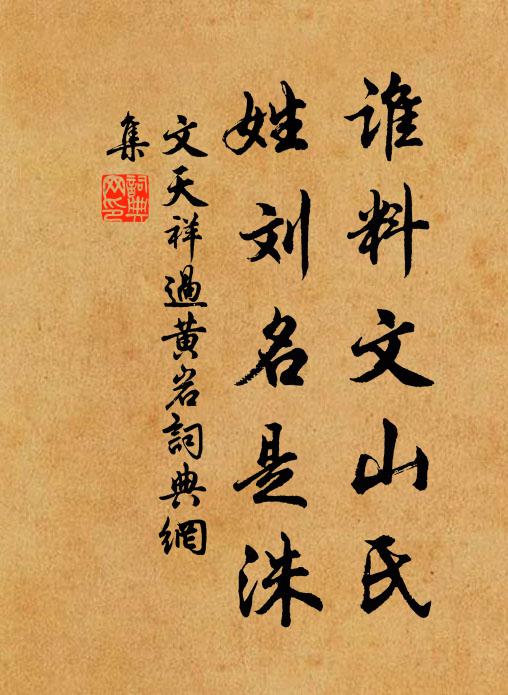 谁料文山氏
姓刘名是洙
文天祥過黄岩詞典網
集
詞典
网印